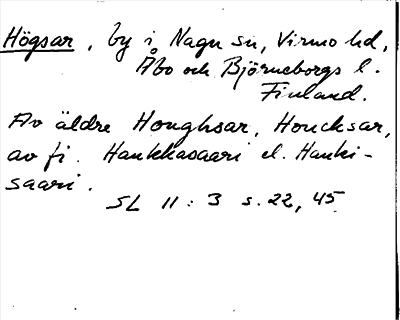 Högsar, by i Nagu sn, Virmo hd,
Åbo och Björneborgs l.
Finland.
Av äldre Honghsar, Houcksar,
av fi. Haukkasaari el. Hauki-
saari.
SL 11:3 s. 22, 45.